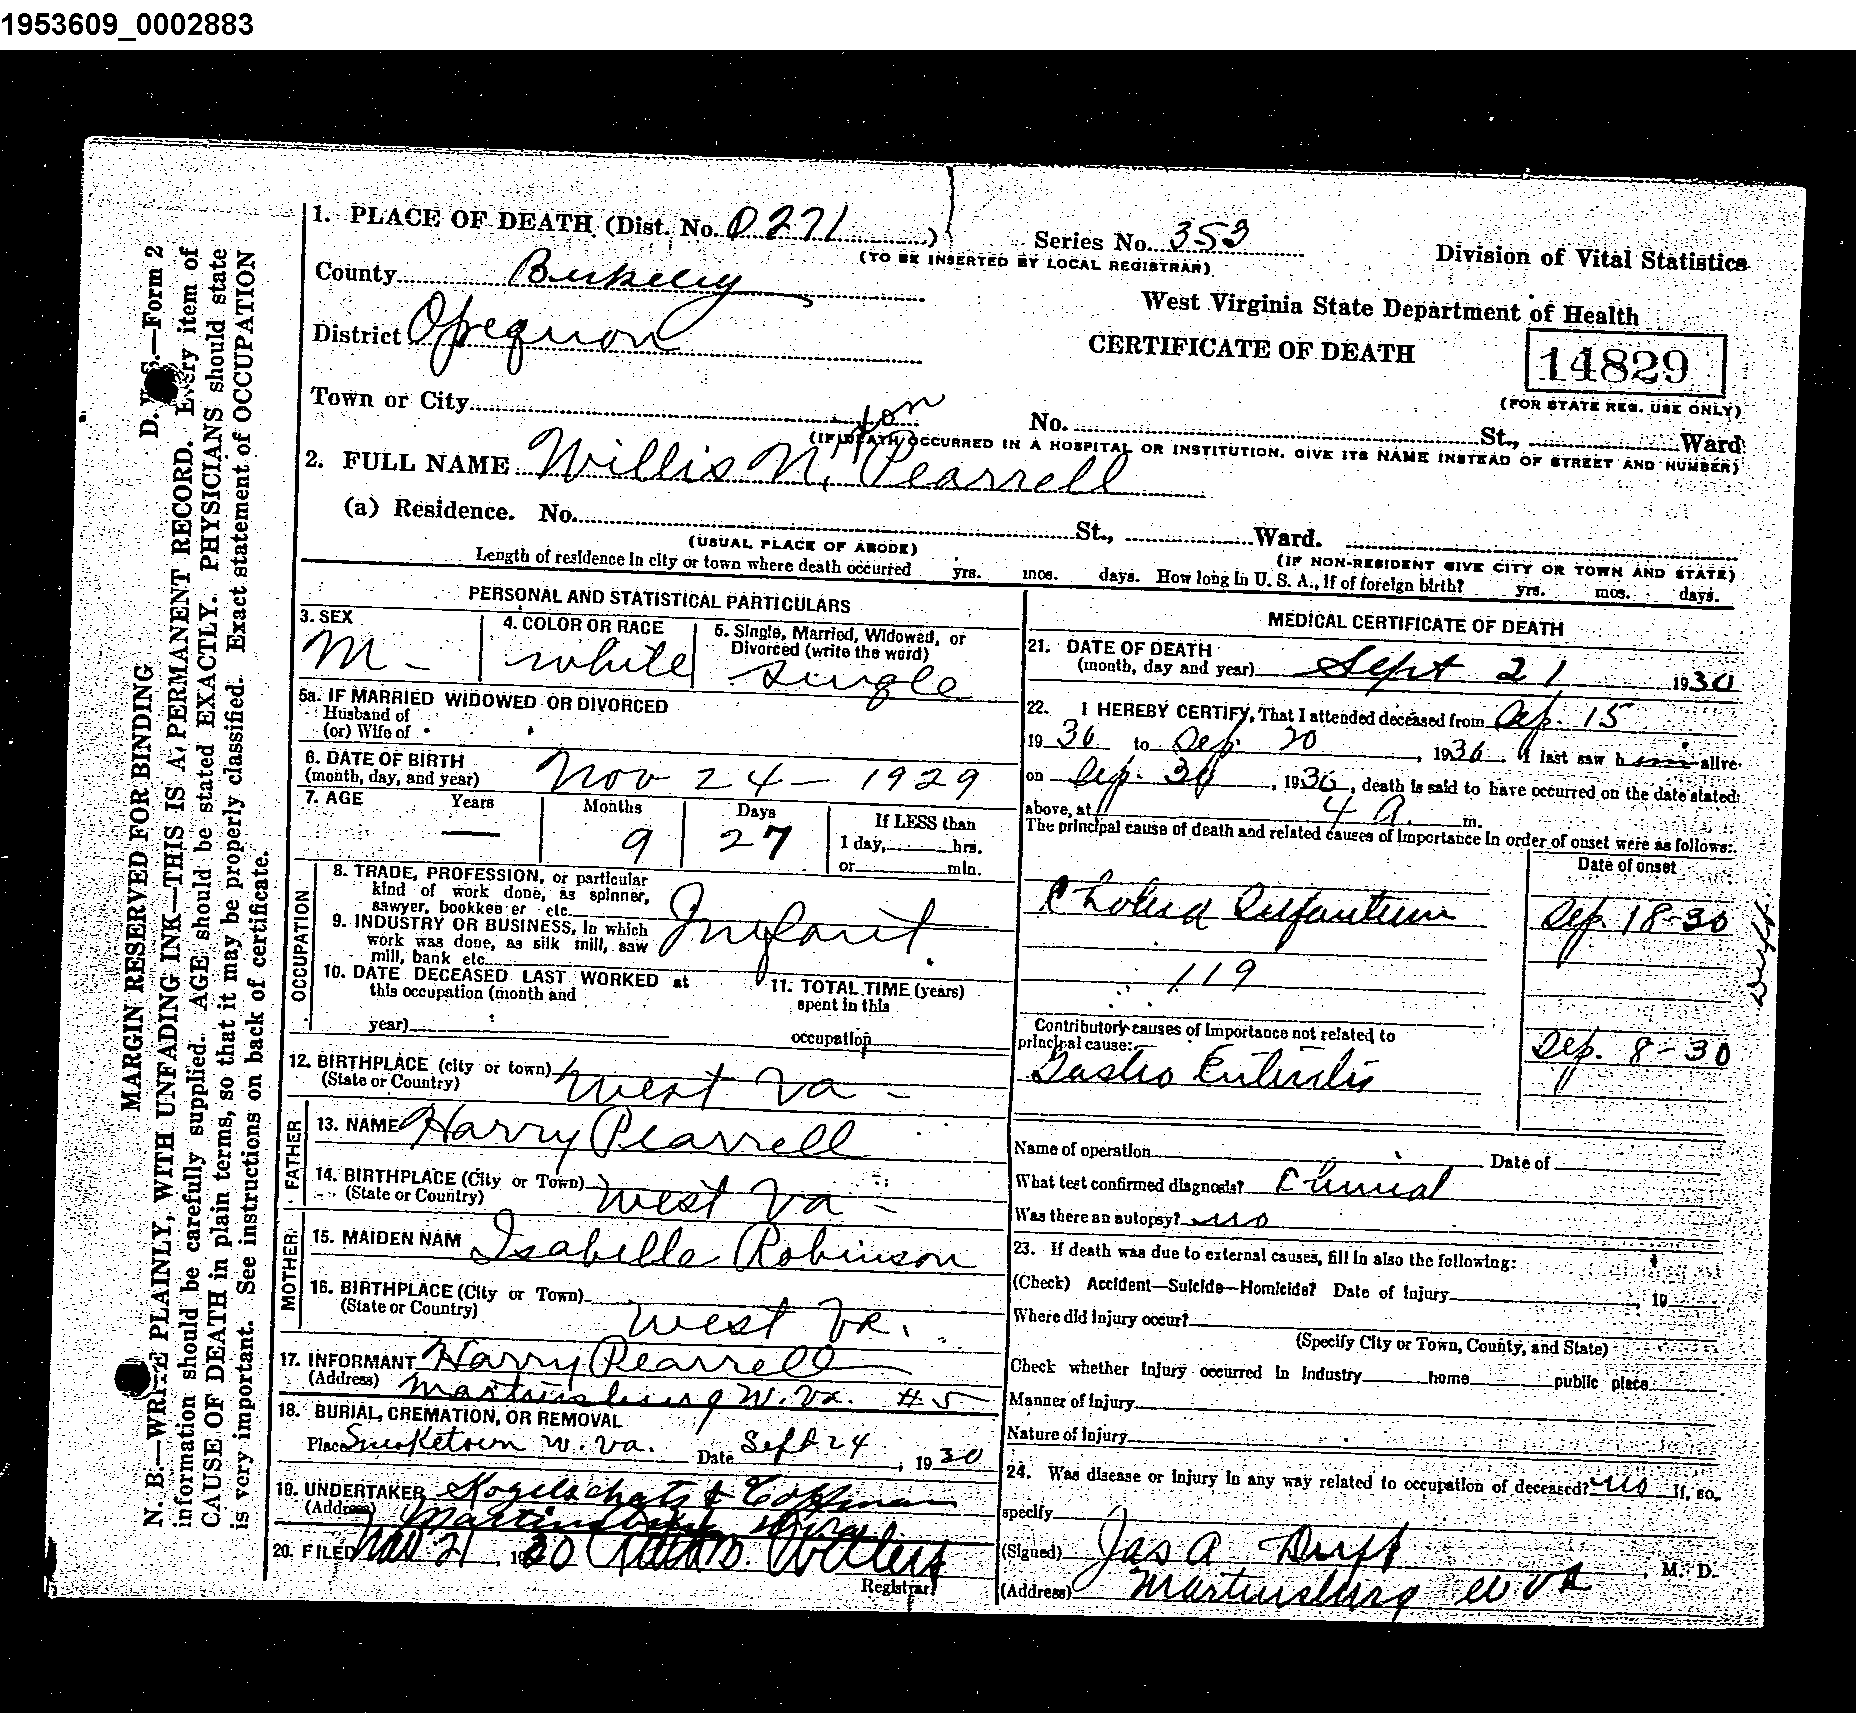 1953609_0002883
1. PLACE OF DEATH (Dist. No. 0271 )
Series No. 353
(TO BE INSERTED BY LOCAL REGISTRAR)
Division of Vital Statistics
County Berkeley
West Virginia State Department of Health
District Opequon
CERTIFICATE OF DEATH
14829
(FOR STATE REG. USE ONLY)
Town or City
No. St., Ward
(IF DEATH OCCURRED IN A HOSPITAL OR INSTITUTION, GIVE ITS NAME INSTEAD OF STREET AND NUMBER)
2. FULL NAME Willis N. Pearrell
(a) Residence. No. St., Ward.
(USUAL PLACE OF ABODE)
(IF NON-RESIDENT GIVE CITY OR TOWN AND STATE)
Length of residence in city or town where death occurred yrs. mos. days. How long in U. S. A., if of foreign birth? yrs. mos. days.
PERSONAL AND STATISTICAL PARTICULARS
3. SEX
M -
4. COLOR OR RACE
white
5. Single, Married, Widowed, or
Divorced (write the word)
single
5a. IF MARRIED WIDOWED OR DIVORCED
Husband of
(or) Wife of
6. DATE OF BIRTH
(month, day, and year) Nov 24 - 1929
7. AGE Years Months Days If LESS than
— 9 27 1 day, hrs.
or min.
OCCUPATION
8. TRADE, PROFESSION, or particular
kind of work done, as spinner,
sawyer, bookkeeper etc.
Infant
9. INDUSTRY OR BUSINESS, in which
work was done, as silk mill, saw
mill, bank etc.
10. DATE DECEASED LAST WORKED at
this occupation (month and
year)
11. TOTAL TIME (years)
spent in this
occupation
12. BIRTHPLACE (city or town)
(State or Country) West Va -
FATHER
13. NAME Harry Pearrell
14. BIRTHPLACE (City or Town)
(State or Country) West Va -
MOTHER
15. MAIDEN NAM Isabelle Robinson
16. BIRTHPLACE (City or Town)
(State or Country) West Va.
17. INFORMANT Harry Pearrell
(Address) Martinsburg W. Va. #5
18. BURIAL, CREMATION, OR REMOVAL
Place Smoketown W. Va. Date Sept 24, 1930
19. UNDERTAKER
(Address) Martinsburg
20. FILED 21 1930
Registrar
MEDICAL CERTIFICATE OF DEATH
21. DATE OF DEATH
(month, day and year) Sept 21 1930
22. I HEREBY CERTIFY, That I attended deceased from Sep. 15
1930 to Sep. 20, 1930. I last saw him alive
on Sep. 20, 1930, death is said to have occurred on the date stated
above, at 4 A. m.
The principal cause of death and related causes of importance in order of onset were as follows:
Date of onset
Cholera Infantum Sep. 18-30
119
Contributory causes of importance not related to
principal cause:
Gastro Enteritis Sep. 8-30
Name of operation Date of
What test confirmed diagnosis? Clinical
Was there an autopsy? no
23. If death was due to external causes, fill in also the following:
(Check) Accident—Suicide—Homicide? Date of Injury , 19
Where did injury occur?
(Specify City or Town, County, and State)
Check whether injury occurred in industry home public place
Manner of Injury
Nature of Injury
24. Was disease or injury in any way related to occupation of deceased? no If, so,
specify
(Signed) Jas A , M. D.
(Address) Martinsburg W Va
D. V. S.—Form 2
MARGIN RESERVED FOR BINDING
N. B.—WRITE PLAINLY, WITH UNFADING INK—THIS IS A PERMANENT RECORD. Every item of
information should be carefully supplied. AGE should be stated EXACTLY. PHYSICIANS should state
CAUSE OF DEATH in plain terms, so that it may be properly classified. Exact statement of OCCUPATION
is very important. See instructions on back of certificate.